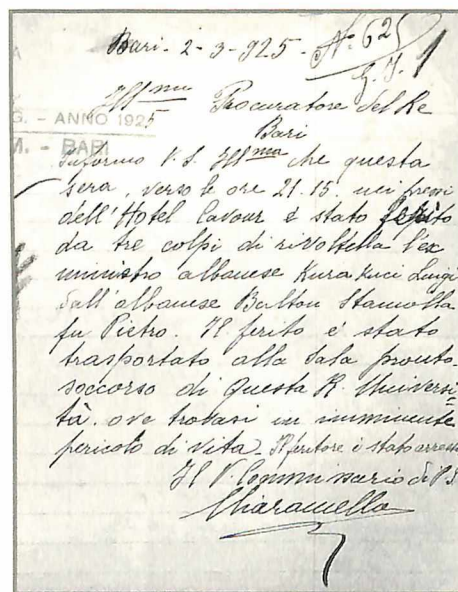 Bari - 2-3-925 - N. 625
G. I. 1
Ill^mo Procuratore del Re
G. - ANNO 1925
Bari
M. - BARI
Informo V. S. Ill^ma che questa
sera, verso le ore 21.15. nei pressi
dell'Hotel Cavour è stato ferito
da tre colpi di rivoltella l'ex
ministro albanese Kurakuci Luigi
dall'albanese Balton Stamolla
fu Pietro. Il ferito è stato
trasportato alla sala pronto-
soccorso di questa R. Universi-
tà, ove trovasi in imminente
pericolo di vita - Il feritore è stato arrest
Il V. Commissario di P.S
Chiaramella